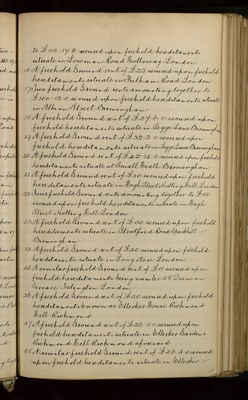 to £112.17.6 secured upon freehold hereditaments
situate in Lowman Road Holloway London
16 A freehold Ground rent of £22 secured upon freehold
hereditaments situate in Fulham Road London
17 Two freehold Ground rents amounting together to
£100.12.0 secured upon freehold hereditaments situate
in Albion Street Birmingham
18 A freehold Ground rent of £27.6.0 secured upon
freehold hereditaments situate in Legge Lane Birmingham
19 A freehold Ground rent of £32.2.0 secured upon
freehold hereditaments situate in Legge Lane Birmingham
20 A freehold Ground rent of £22.12.0 secured upon freehold
hereditaments situate at Small Heath Birmingham
21 A freehold Ground rent of £20 secured upon freehold
hereditaments situate in High Street Notting Hill London
22 Four freehold Ground rents amounting together to £
secured upon freehold hereditaments situate in High
Street Notting Hill London
23 A freehold Ground rent of £50 secured upon freehold
hereditaments situate in Stratford Road Sparkhill
Birmingham
24 A freehold Ground rent of £20 secured upon freehold
hereditaments situate in Long Acre London
25 A similar freehold Ground rent of £11 secured upon
freehold hereditaments being number 28 Duncan
Terrace Islington London
26 A freehold Ground rent of £30 secured upon freehold
hereditaments known as Ellerker House Richmond
Hill Richmond
27 A freehold Ground rent of £20.0.0 secured upon
freehold hereditaments situate in Ellerker Gardens
Richmond Hill Richmond aforesaid
28 A similar freehold Ground rent of £28.0.0 secured
upon freehold hereditaments situate in Ellerker